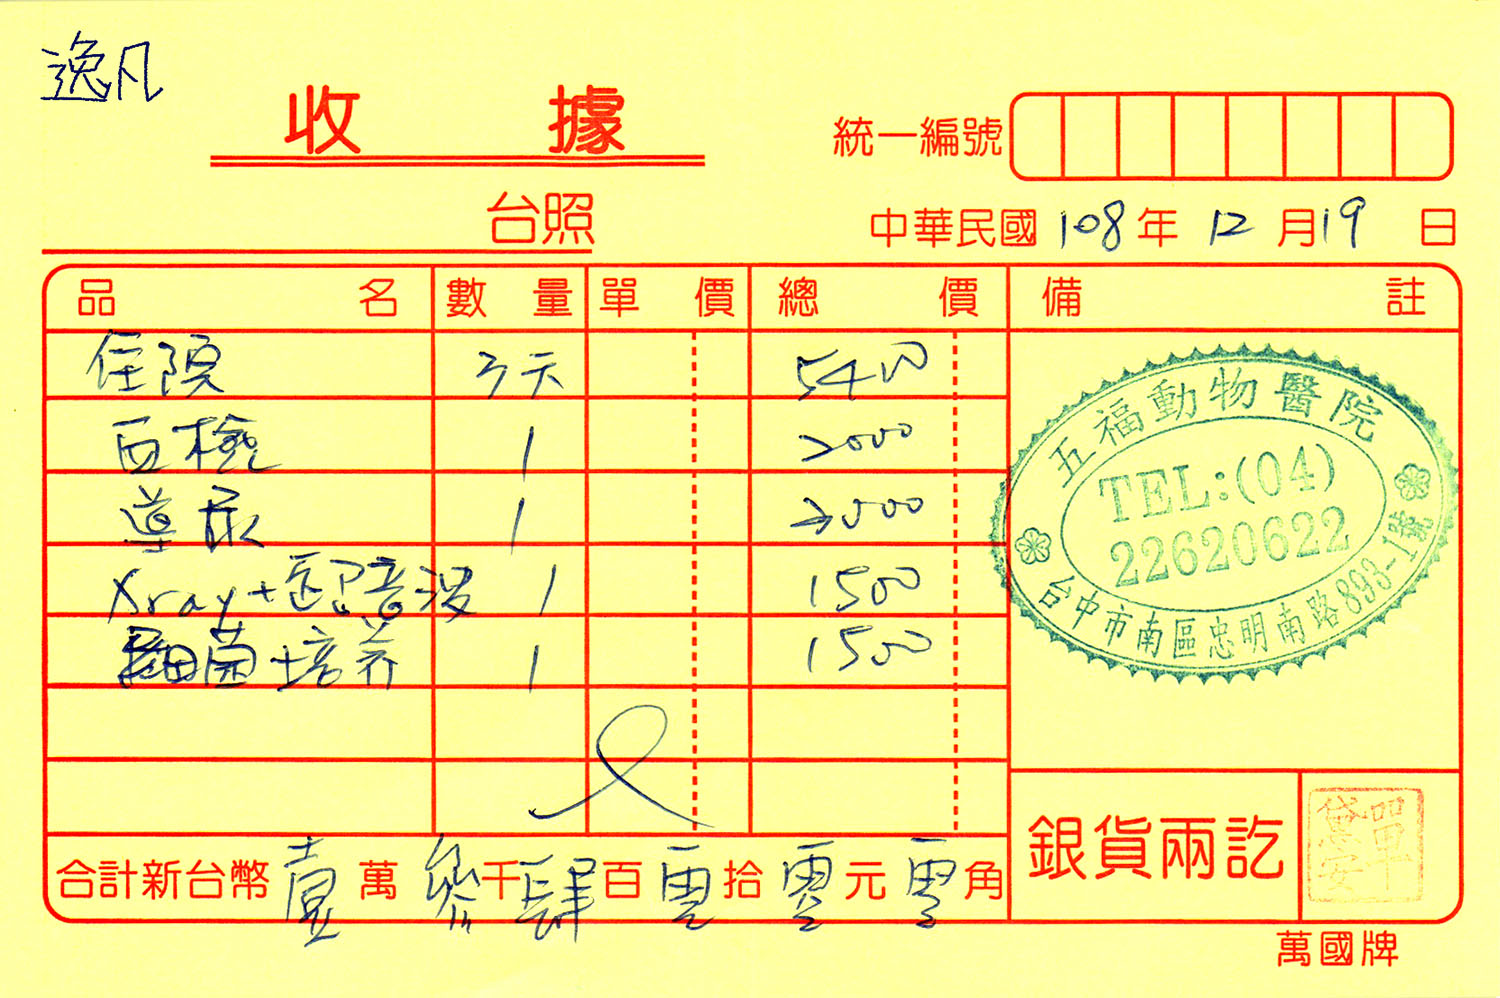 逸凡
收據
統一編號
台照
中華民國108年12月19日
品名 數量 單價 總價 備註
住院 3天 5400
血檢 1 3000
導尿 1 2000
Xray+超音波 1 1500
細菌培養 1 1500
五福動物醫院
TEL:(04)
22620622
台中市南區忠明南路893-1號
合計新台幣壹萬參千肆百零拾零元零角
銀貨兩訖
萬國牌